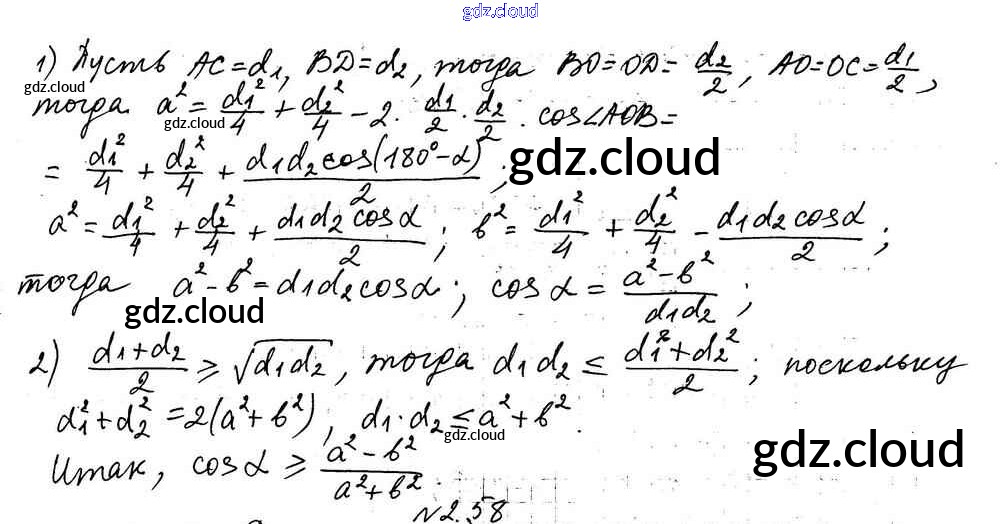 gdz.cloud
1) Пусть AC=d₁, BD=d₂, тогда BO=OD= d₂/2, AO=OC= d₁/2,
gdz.cloud
тогда a² = d₁²/4 + d₂²/4 - 2· d₁/2 · d₂/2 · cos∠AOB =
gdz.cloud
= d₁²/4 + d₂²/4 + d₁d₂cos(180°-α)/2 ;
gdz.cloud
a² = d₁²/4 + d₂²/4 + d₁d₂cosα/2 ; b² = d₁²/4 + d₂²/4 - d₁d₂cosα/2 ;
тогда a²-b² = d₁d₂cosα ; cosα = a²-b²/d₁d₂ ;
gdz.cloud
2) d₁+d₂/2 ≥ √d₁d₂, тогда d₁d₂ ≤ d₁²+d₂²/2 ; поскольку
d₁²+d₂² = 2(a²+b²), d₁·d₂ ≤ a²+b².
gdz.cloud
Итак, cosα ≥ a²-b²/a²+b².
gdz.cloud
N2.58